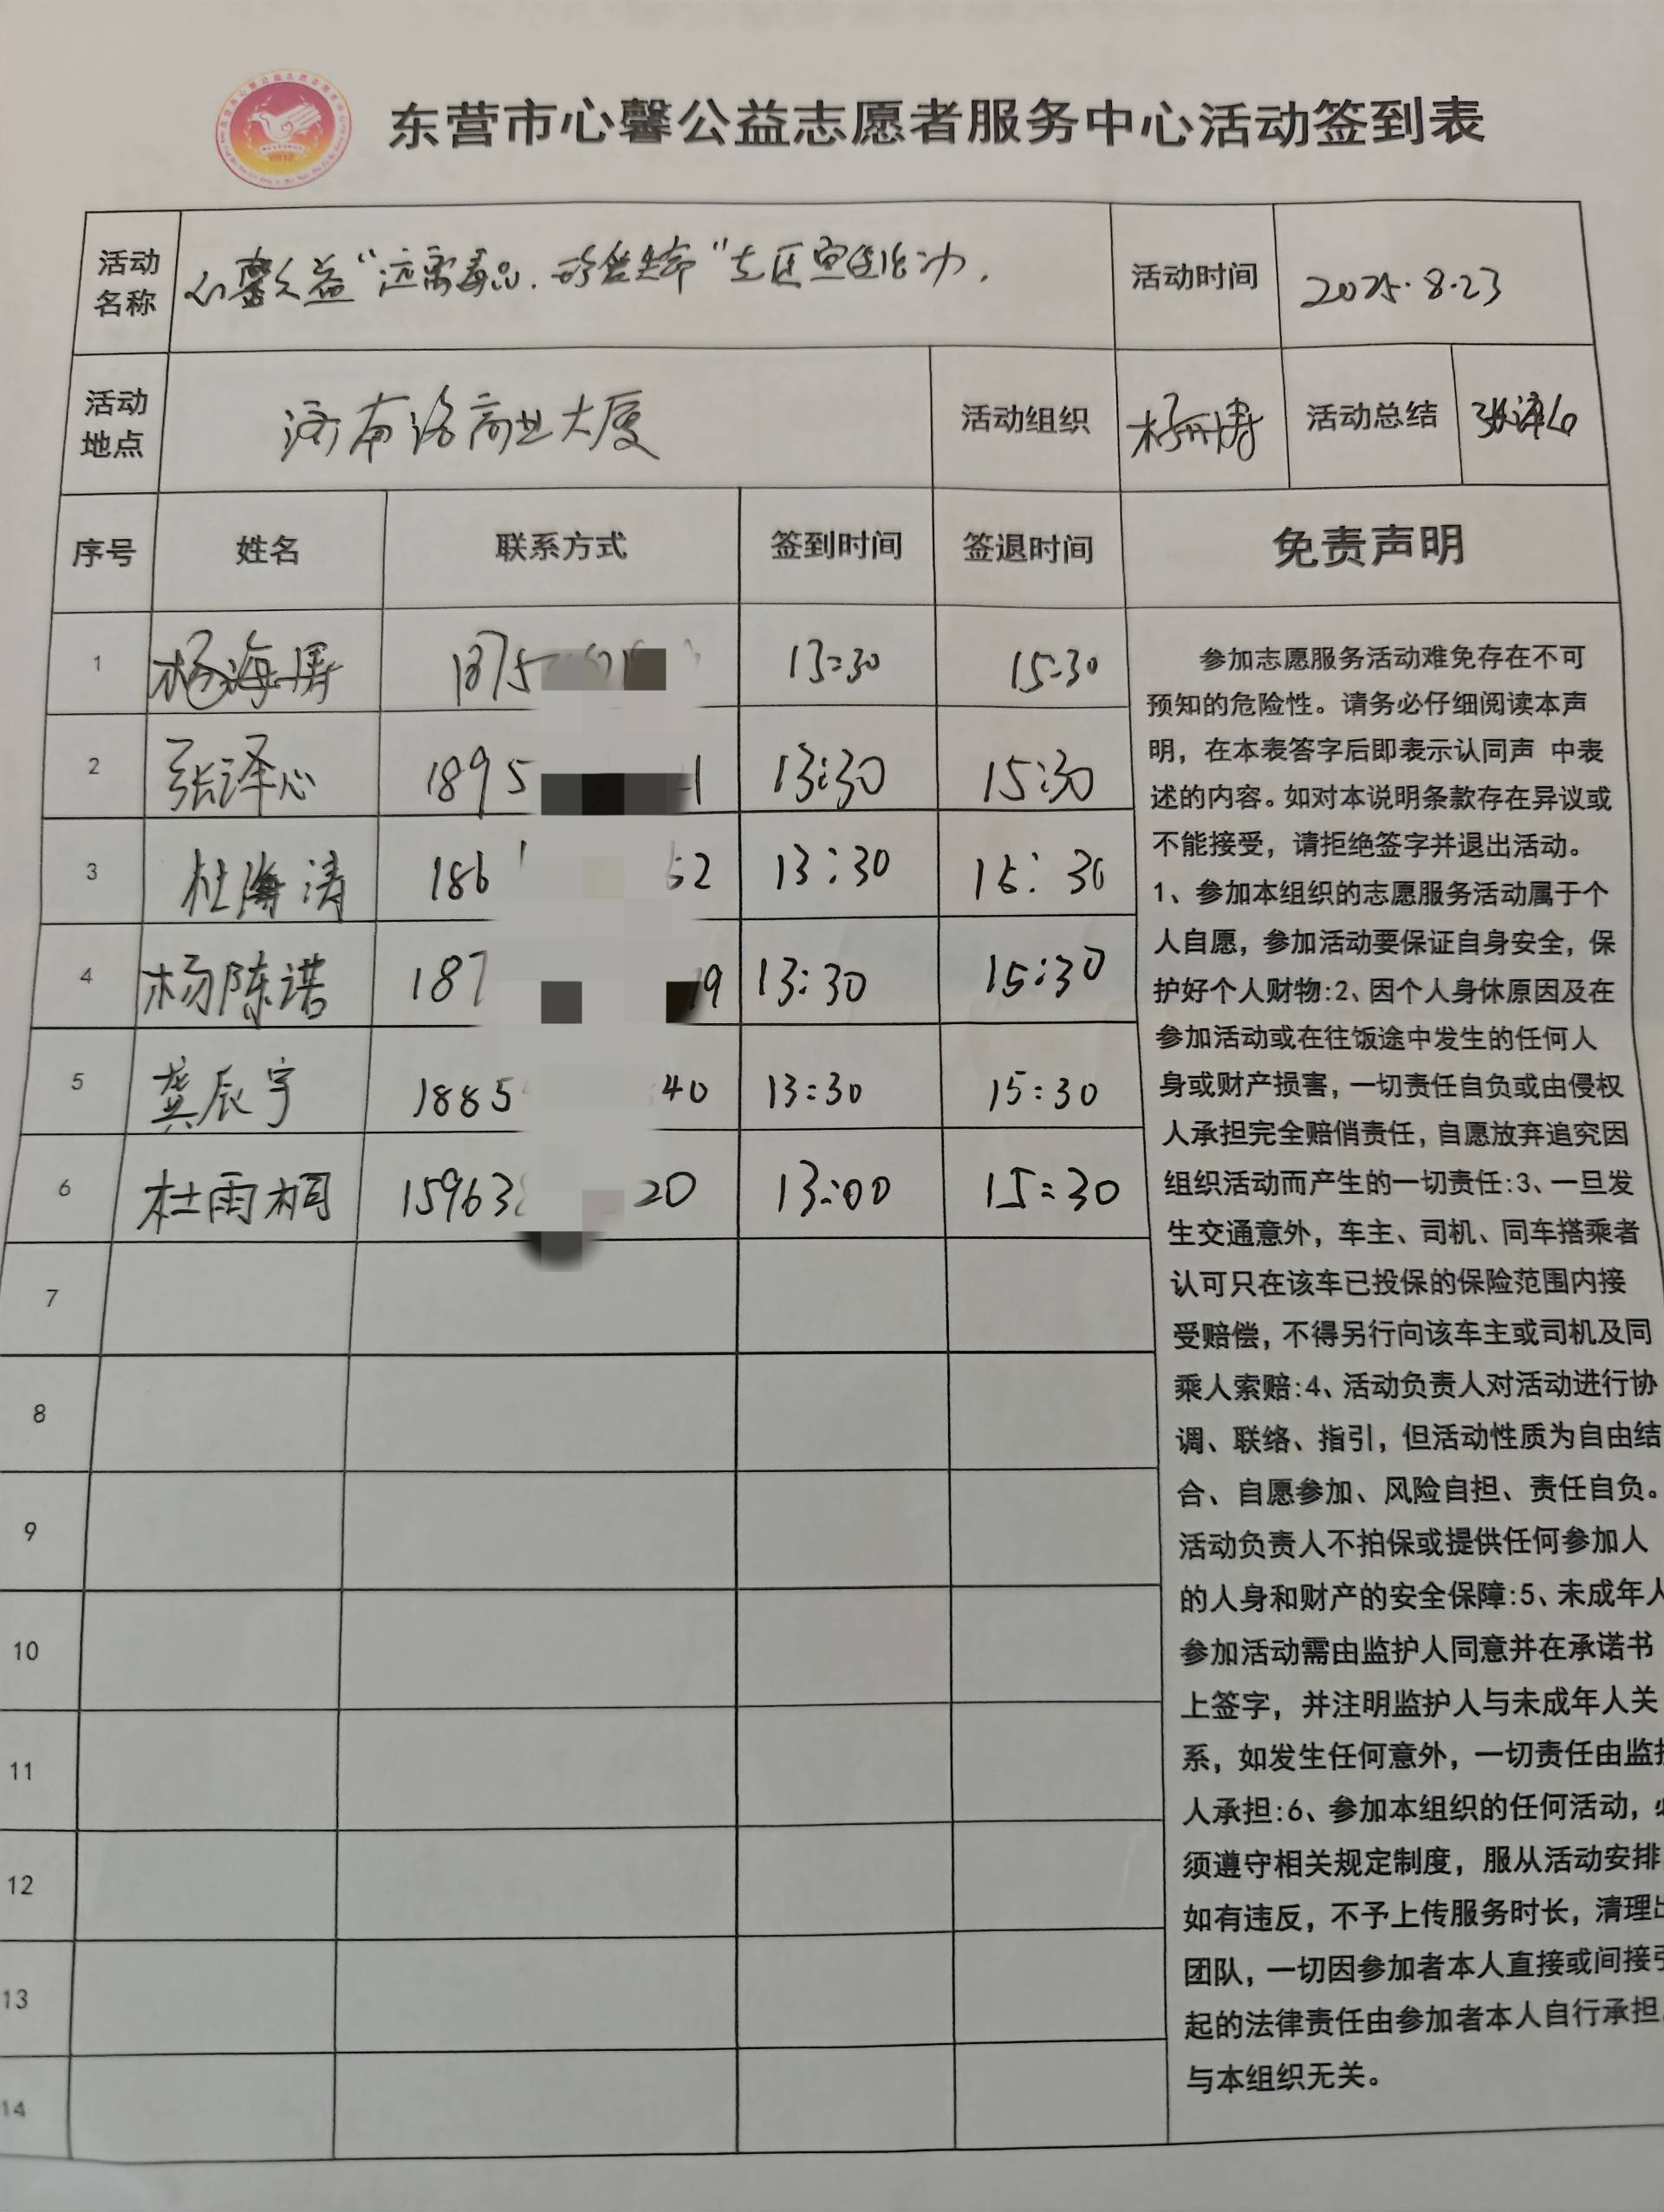 东营市心馨公益志愿者服务中心活动签到表
活动名称 心馨公益“远离毒品,珍爱生命”社区宣传活动. 活动时间 2025.8.23
活动地点 济南路商业大厦 活动组织 活动总结
序号 姓名 联系方式 签到时间 签退时间 免责声明
1 杨海 1875 13:30 15:30
2 张泽心 1895 1 13:30 15:30
3 杜海涛 186 52 13:30 15:30
4 杨陈诺 187 19 13:30 15:30
5 龚辰宇 1885 40 13:30 15:30
6 杜雨桐 15963 20 13:00 15:30
7
8
9
10
11
12
13
14
参加志愿服务活动难免存在不可
预知的危险性。请务必仔细阅读本声
明，在本表答字后即表示认同声 中表
述的内容。如对本说明条款存在异议或
不能接受，请拒绝签字并退出活动。
1、参加本组织的志愿服务活动属于个
人自愿，参加活动要保证自身安全，保
护好个人财物:2、因个人身休原因及在
参加活动或在往饭途中发生的任何人
身或财产损害，一切责任自负或由侵权
人承担完全赔俏责任，自愿放弃追究因
组织活动而产生的一切责任:3、一旦发
生交通意外，车主、司机、同车搭乘者
认可只在该车已投保的保险范围内接
受赔偿，不得另行向该车主或司机及同
乘人索赔:4、活动负责人对活动进行协
调、联络、指引，但活动性质为自由结
合、自愿参加、风险自担、责任自负。
活动负责人不拍保或提供任何参加人
的人身和财产的安全保障:5、未成年人
参加活动需由监护人同意并在承诺书
上签字，并注明监护人与未成年人关
系，如发生任何意外，一切责任由监护
人承担:6、参加本组织的任何活动，必
须遵守相关规定制度，服从活动安排
如有违反，不予上传服务时长，清理出
团队，一切因参加者本人直接或间接引
起的法律责任由参加者本人自行承担，
与本组织无关。